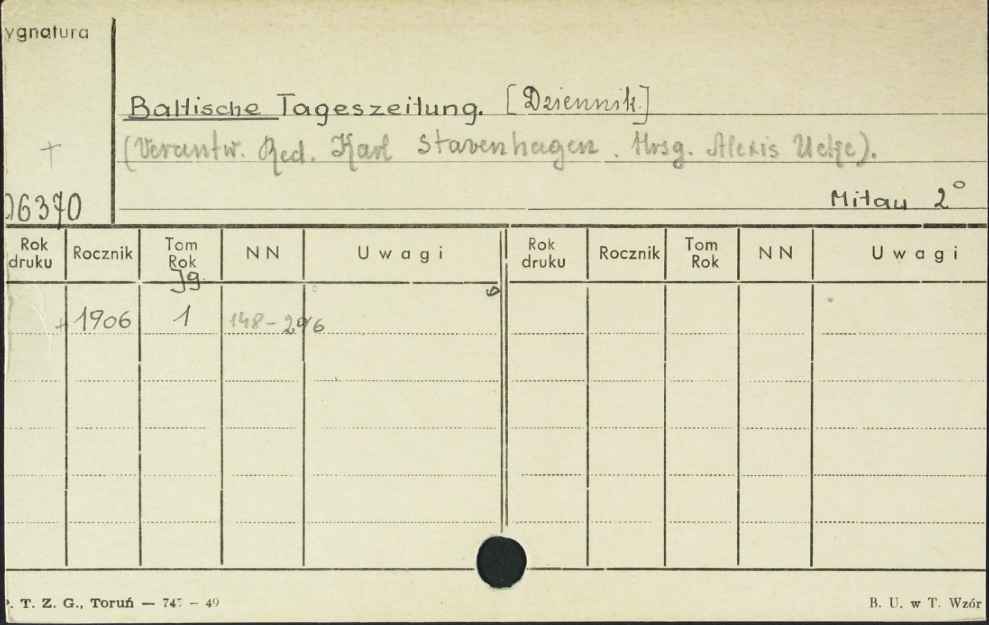 ygnatura
Baltische Tageszeitung. [Dziennik]
(Verantw. Red. Karl Stavenhagen. Hrsg. Alexis Uelze).
06370
Mitau 2°
Rok druku Rocznik Tom Rok NN Uwagi Rok druku Rocznik Tom Rok NN Uwagi
Jg.
+ 1906 1 148-296
P. T. Z. G., Toruń — 747 - 49 B. U. w T. Wzór